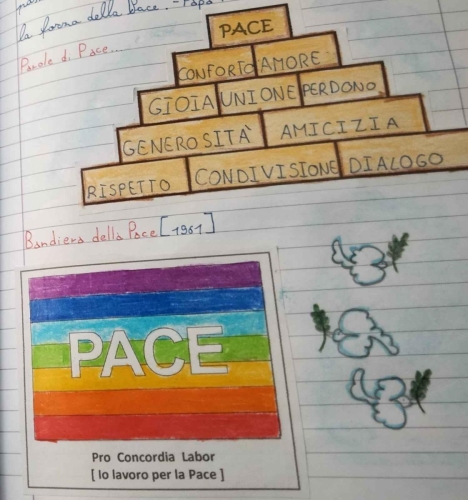 la forza della Pace. - Papa
Parole di Pace...
PACE
CONFORTO AMORE
GIOIA UNIONE PERDONO
GENEROSITÀ AMICIZIA
RISPETTO CONDIVISIONE DIALOGO
Bandiera della Pace [1961]
PACE
Pro Concordia Labor
[ Io lavoro per la Pace ]